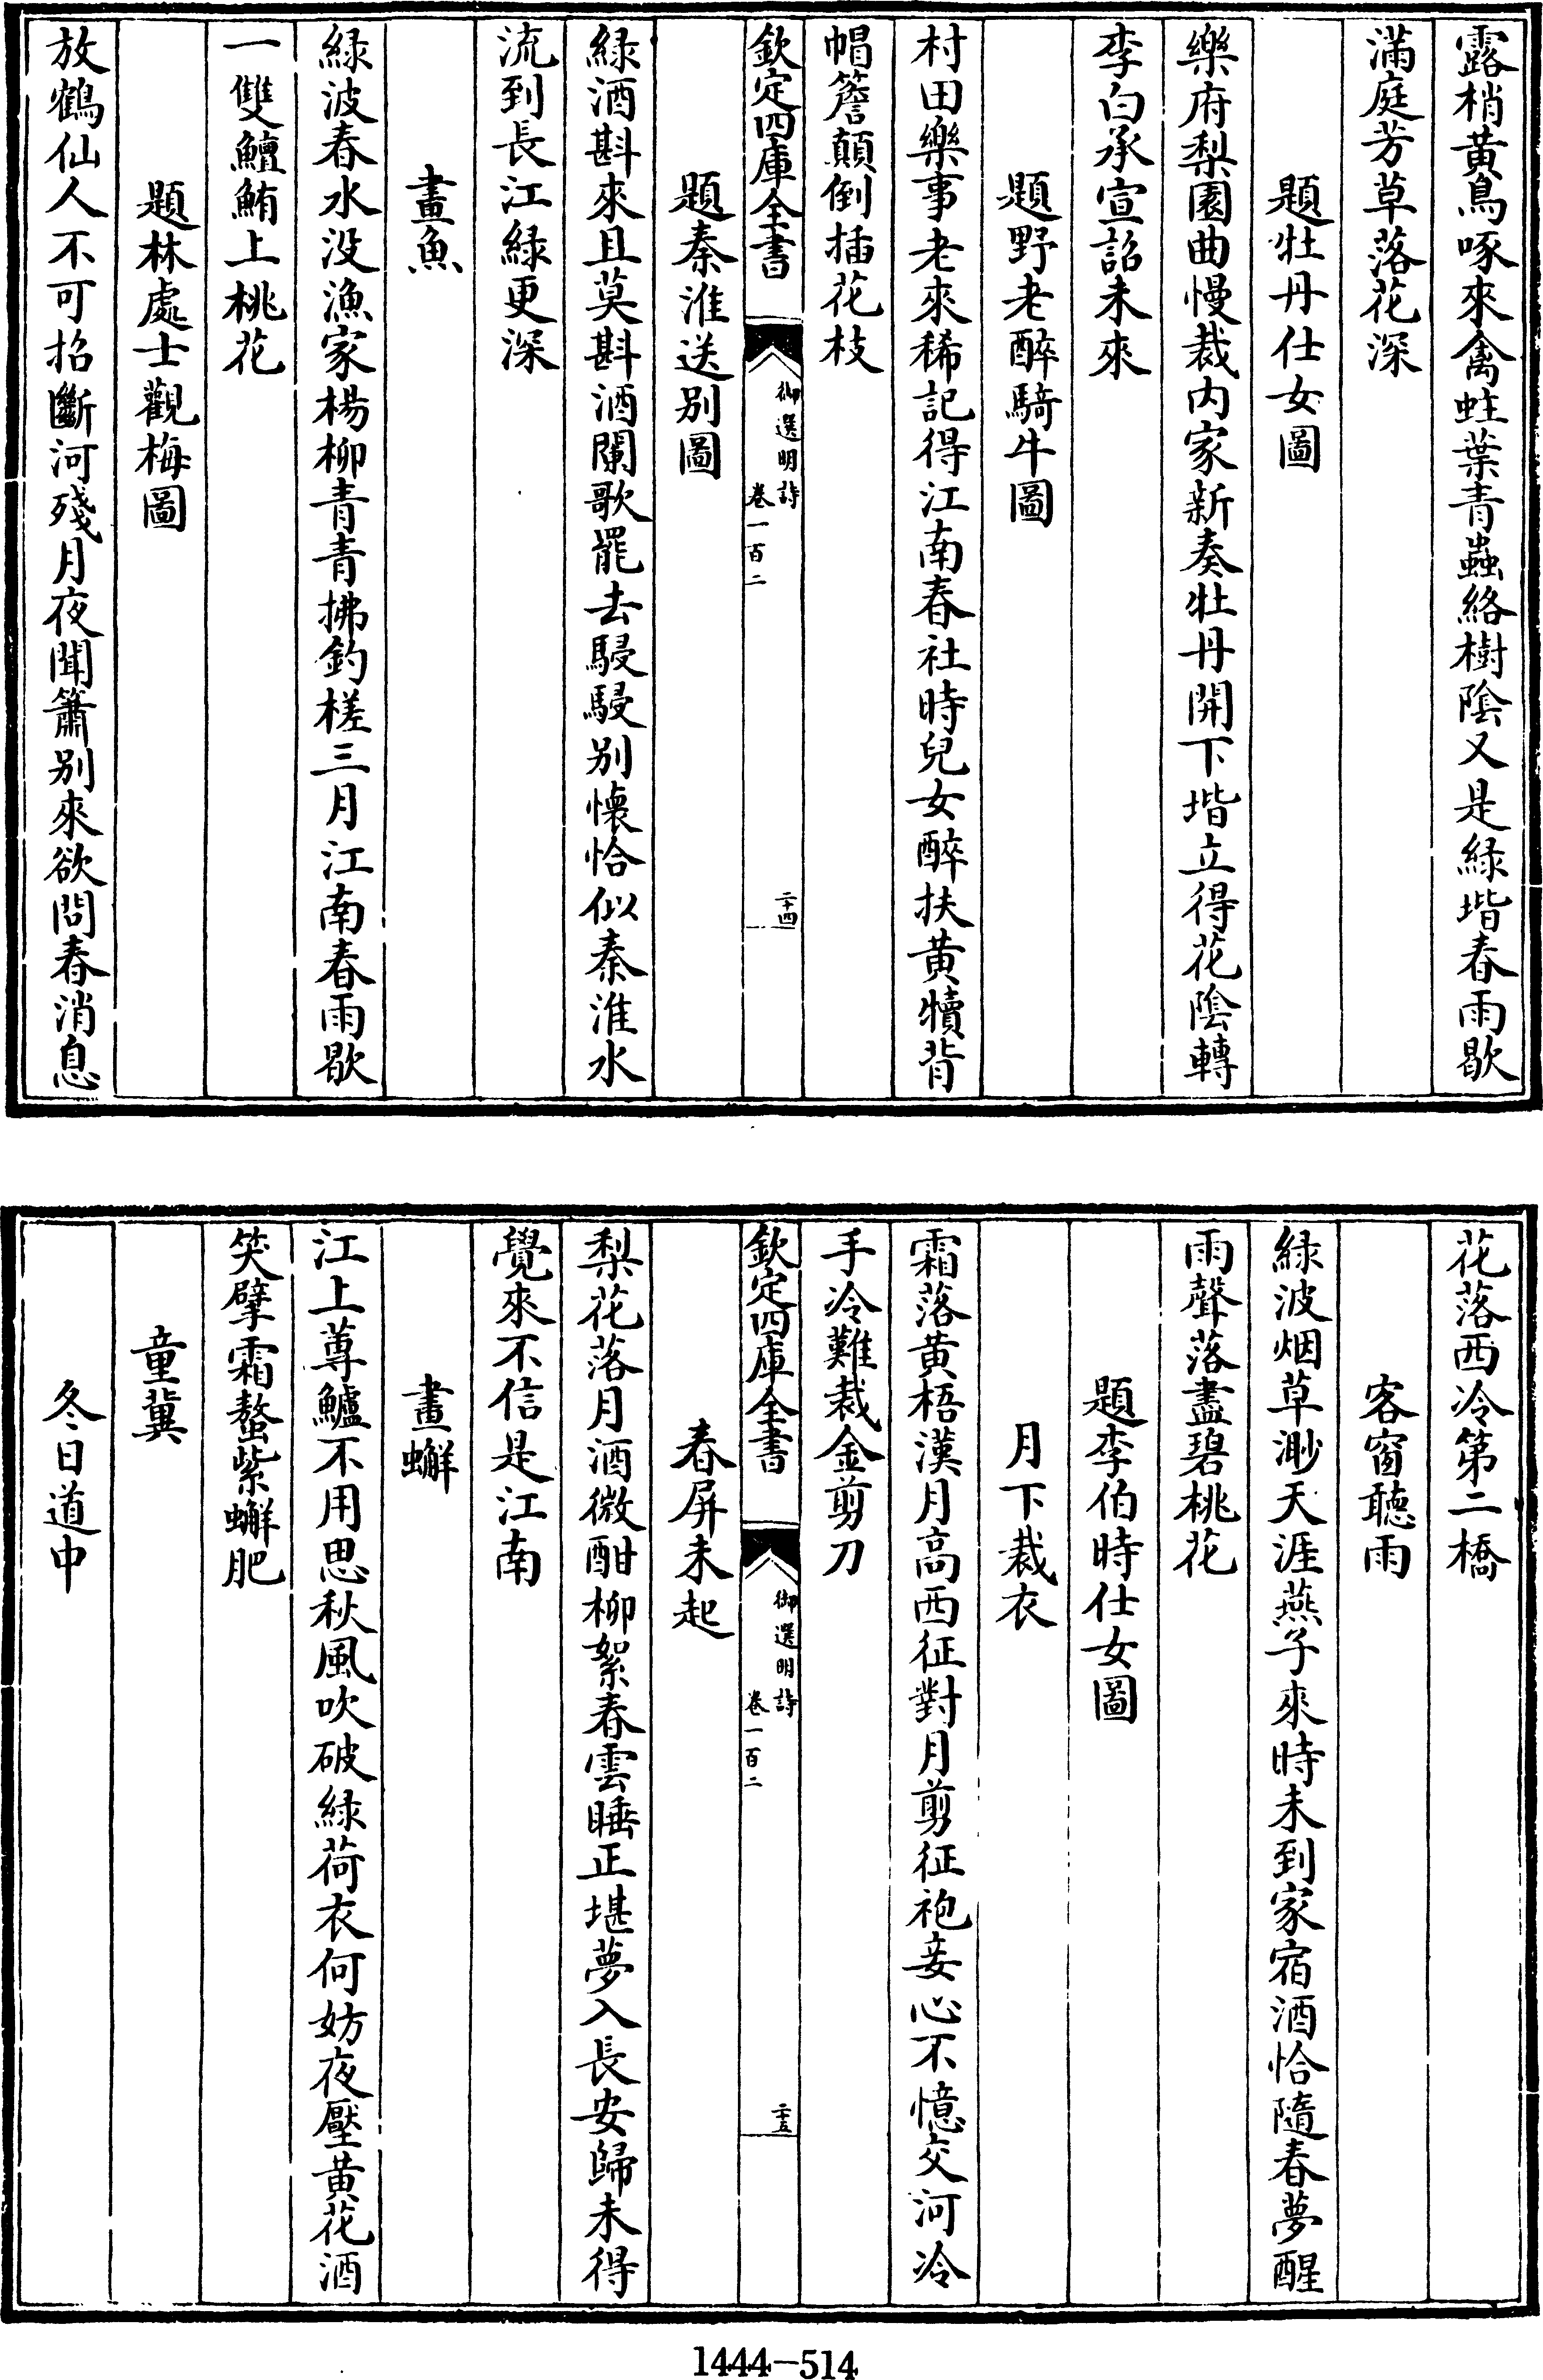 露梢黄鳥啄來禽蛀葉青蟲絡樹陰又是緑堦春雨歇
滿庭芳草落花深
題牡丹仕女圖
樂府梨園曲慢裁内家新奏牡丹開下堦立得花陰轉
李白承宣詔未來
題野老醉騎牛圖
村田樂事老來稀記得江南春社時兒女醉扶黄犢背
帽簷顛倒插花枝
欽定四庫全書
御選明詩
卷一百二
二十四
題秦淮送别圖
緑酒斟來且莫斟酒闌歌罷去駸駸别懷恰似秦淮水
流到長江緑更深
畫魚
緑波春水没漁家楊柳青青拂釣槎三月江南春雨歇
一雙鱣鮪上桃花
題林處士觀梅圖
放鶴仙人不可招斷河殘月夜聞簫别來欲問春消息
花落西泠第二橋
客窗聽雨
緑波烟草渺天涯燕子來時未到家宿酒恰隨春夢醒
雨聲落盡碧桃花
題李伯時仕女圖
月下裁衣
霜落黄梧漢月高西征對月剪征袍妾心不憶交河冷
手冷難裁金剪刀
欽定四庫全書
御選明詩
卷一百二
二十五
春屏未起
梨花落月酒微酣柳絮春雲睡正堪夢入長安歸未得
覺來不信是江南
畫蠏
江上蓴鱸不用思秋風吹破緑荷衣何妨夜壓黄花酒
笑擘霜螯紫蠏肥
童冀
冬日道中
1444—514